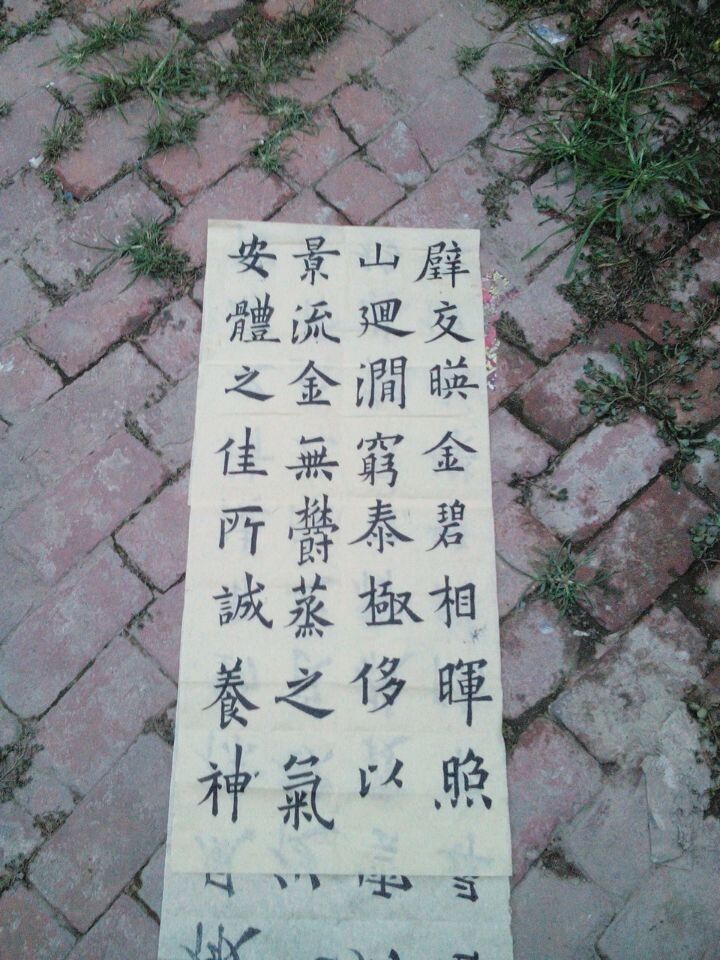 璧交暎金碧相暉照
山廻澗窮泰極侈以
景流金無欝蒸之氣
安體之佳所誠養神